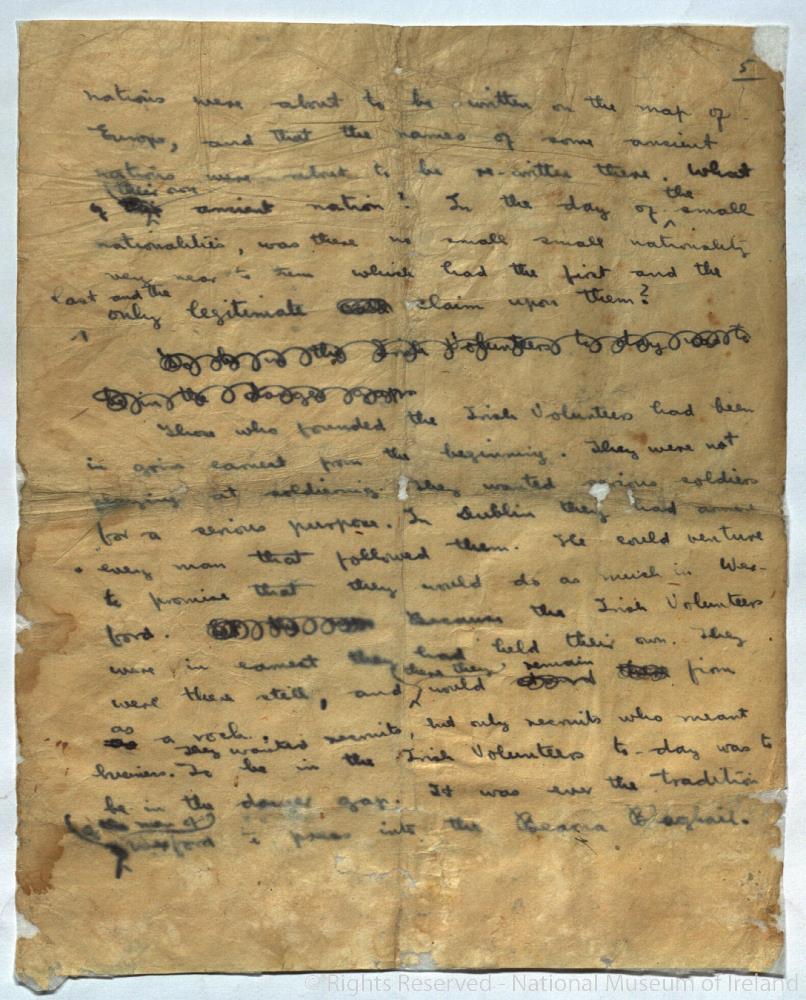 5
nations were about to be written on the map of
Europe, and that the names of some ancient
nations were about to be re-written there. What
of their own ancient nation? In the day of the small
nationalities, was there no small small nationality
very near to them which had the first and the
last and the only legitimate claim upon them?
To be in the Irish Volunteers to-day was to
be in the danger gap.
Those who founded the Irish Volunteers had been
in grim earnest from the beginning. They were not
playing at soldiering. They wanted serious soldiers
for a serious purpose. In Dublin they had armed
every man that followed them. He could venture
to promise that they would do as much in Wex-
ford. Because the Irish Volunteers
were in earnest they had held their own. They
were there still, and there they would remain firm
as a rock. They wanted recruits, but only recruits who meant
business. To be in the Irish Volunteers to-day was to
be in the danger gap. It was ever the tradition
of the men of Wexford to press into the Bearna Baoghail.
© Rights Reserved - National Museum of Ireland